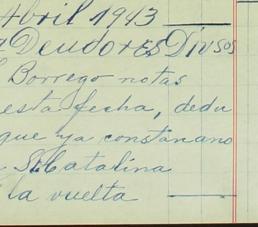 Abril 1913
Deudores Divsos
Borrego notas
esta fecha, dedu
que ya constan ano
Sta Catalina
la vuelta